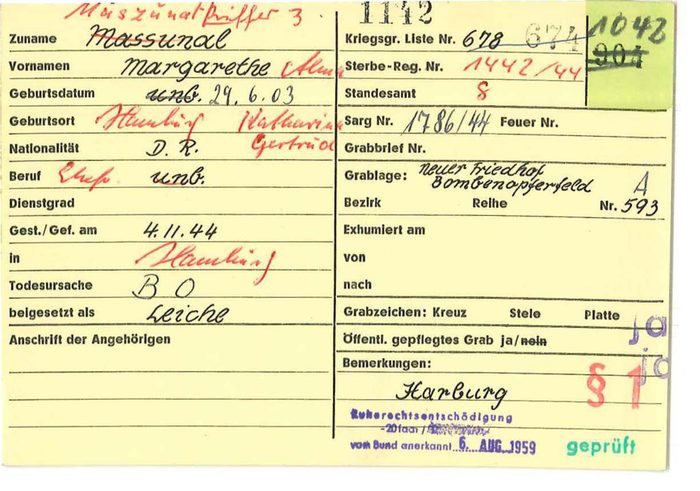 1142
Zuname Massunat
Vornamen Margarethe Alma
Geburtsdatum unb. 29.6.03
Geburtsort Hamburg Katharina
Gertrud
Nationalität D. R.
Beruf unb.
Dienstgrad
Gest./Gef. am 4.11.44
in Hamburg
Todesursache B O
beigesetzt als Leiche
Anschrift der Angehörigen
Kriegsgr. Liste Nr. 678 674 1042
904
Sterbe-Reg. Nr. 1442/44
Standesamt 8
Sarg Nr. 1786/44 Feuer Nr.
Grabbrief Nr.
Grablage: Neuer Friedhof
Bombenopferfeld A
Bezirk Reihe Nr. 593
Exhumiert am
von
nach
Grabzeichen: Kreuz Stele Platte
Öffentl. gepflegtes Grab ja/nein ja
ja
Bemerkungen:
Harburg § 1
Ruherechtsentschädigung
vom Bund anerkannt 6. AUG. 1959
geprüft